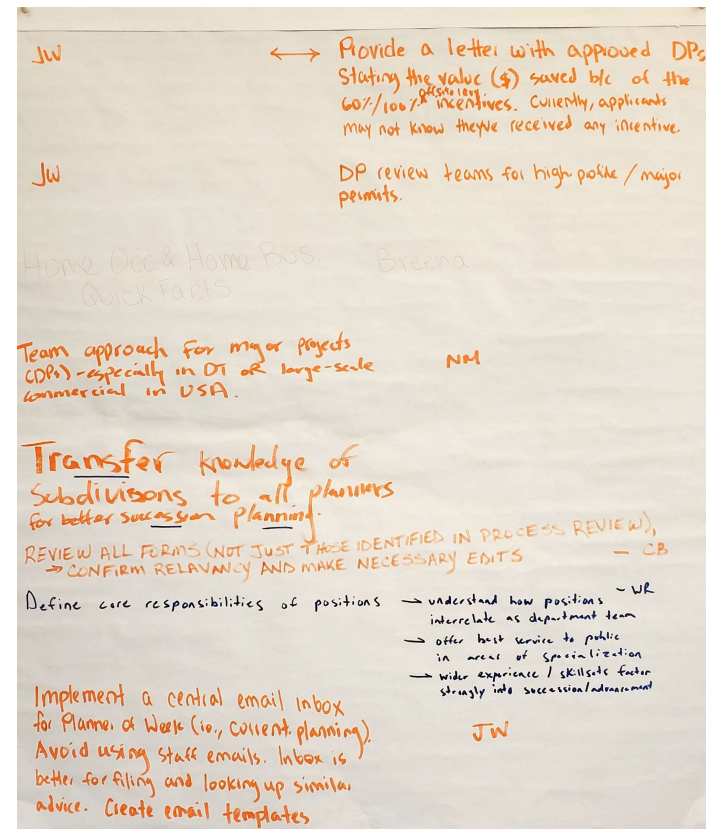 JW ↔ Provide a letter with approved DPs
Stating the value ($) saved b/c of the
60%/100% offsite levy incentives. Currently, applicants
may not know theyve received any incentive.
JW DP review teams for high profile / major
permits.
Home Occ & Home Bus. Breena
Quick Facts
Team approach for major projects
(DPs) - especially in DT or large-scale
commercial in USA.
NM
Transfer knowledge of
Subdivisons to all planners
for better succession planning.
REVIEW ALL FORMS (NOT JUST THOSE IDENTIFIED IN PROCESS REVIEW),
→ CONFIRM RELAVANCY AND MAKE NECESSARY EDITS — CB
Define core responsibilities of positions → understand how positions - WR
interrelate as department team
→ offer best service to public
in areas of specialization
→ wider experience / skillsets factor
strongly into succession/advancement
Implement a central email inbox
for Planner of Week (ie., current planning).
Avoid using staff emails. Inbox is
better for filing and looking up similar
advice. Create email templates
JW